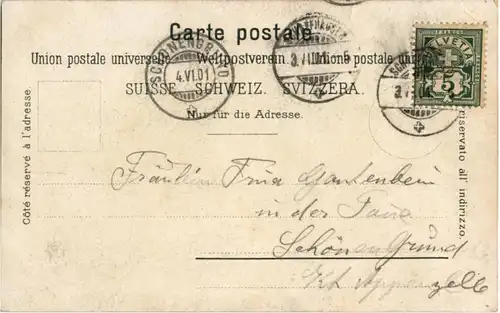 Carte postale.
Union postale universelle. Weltpostverein. Unione postale
SUISSE. SCHWEIZ. SVIZZERA.
Nur für die Adresse.
Côté réservé à l'adresse
riservato all' indirizzo
SCHÖNENGRUND
4.VI.01
HELVETIA
5
Fräulein Gantenbein
in der
Schönengrund
Kt Appenzell